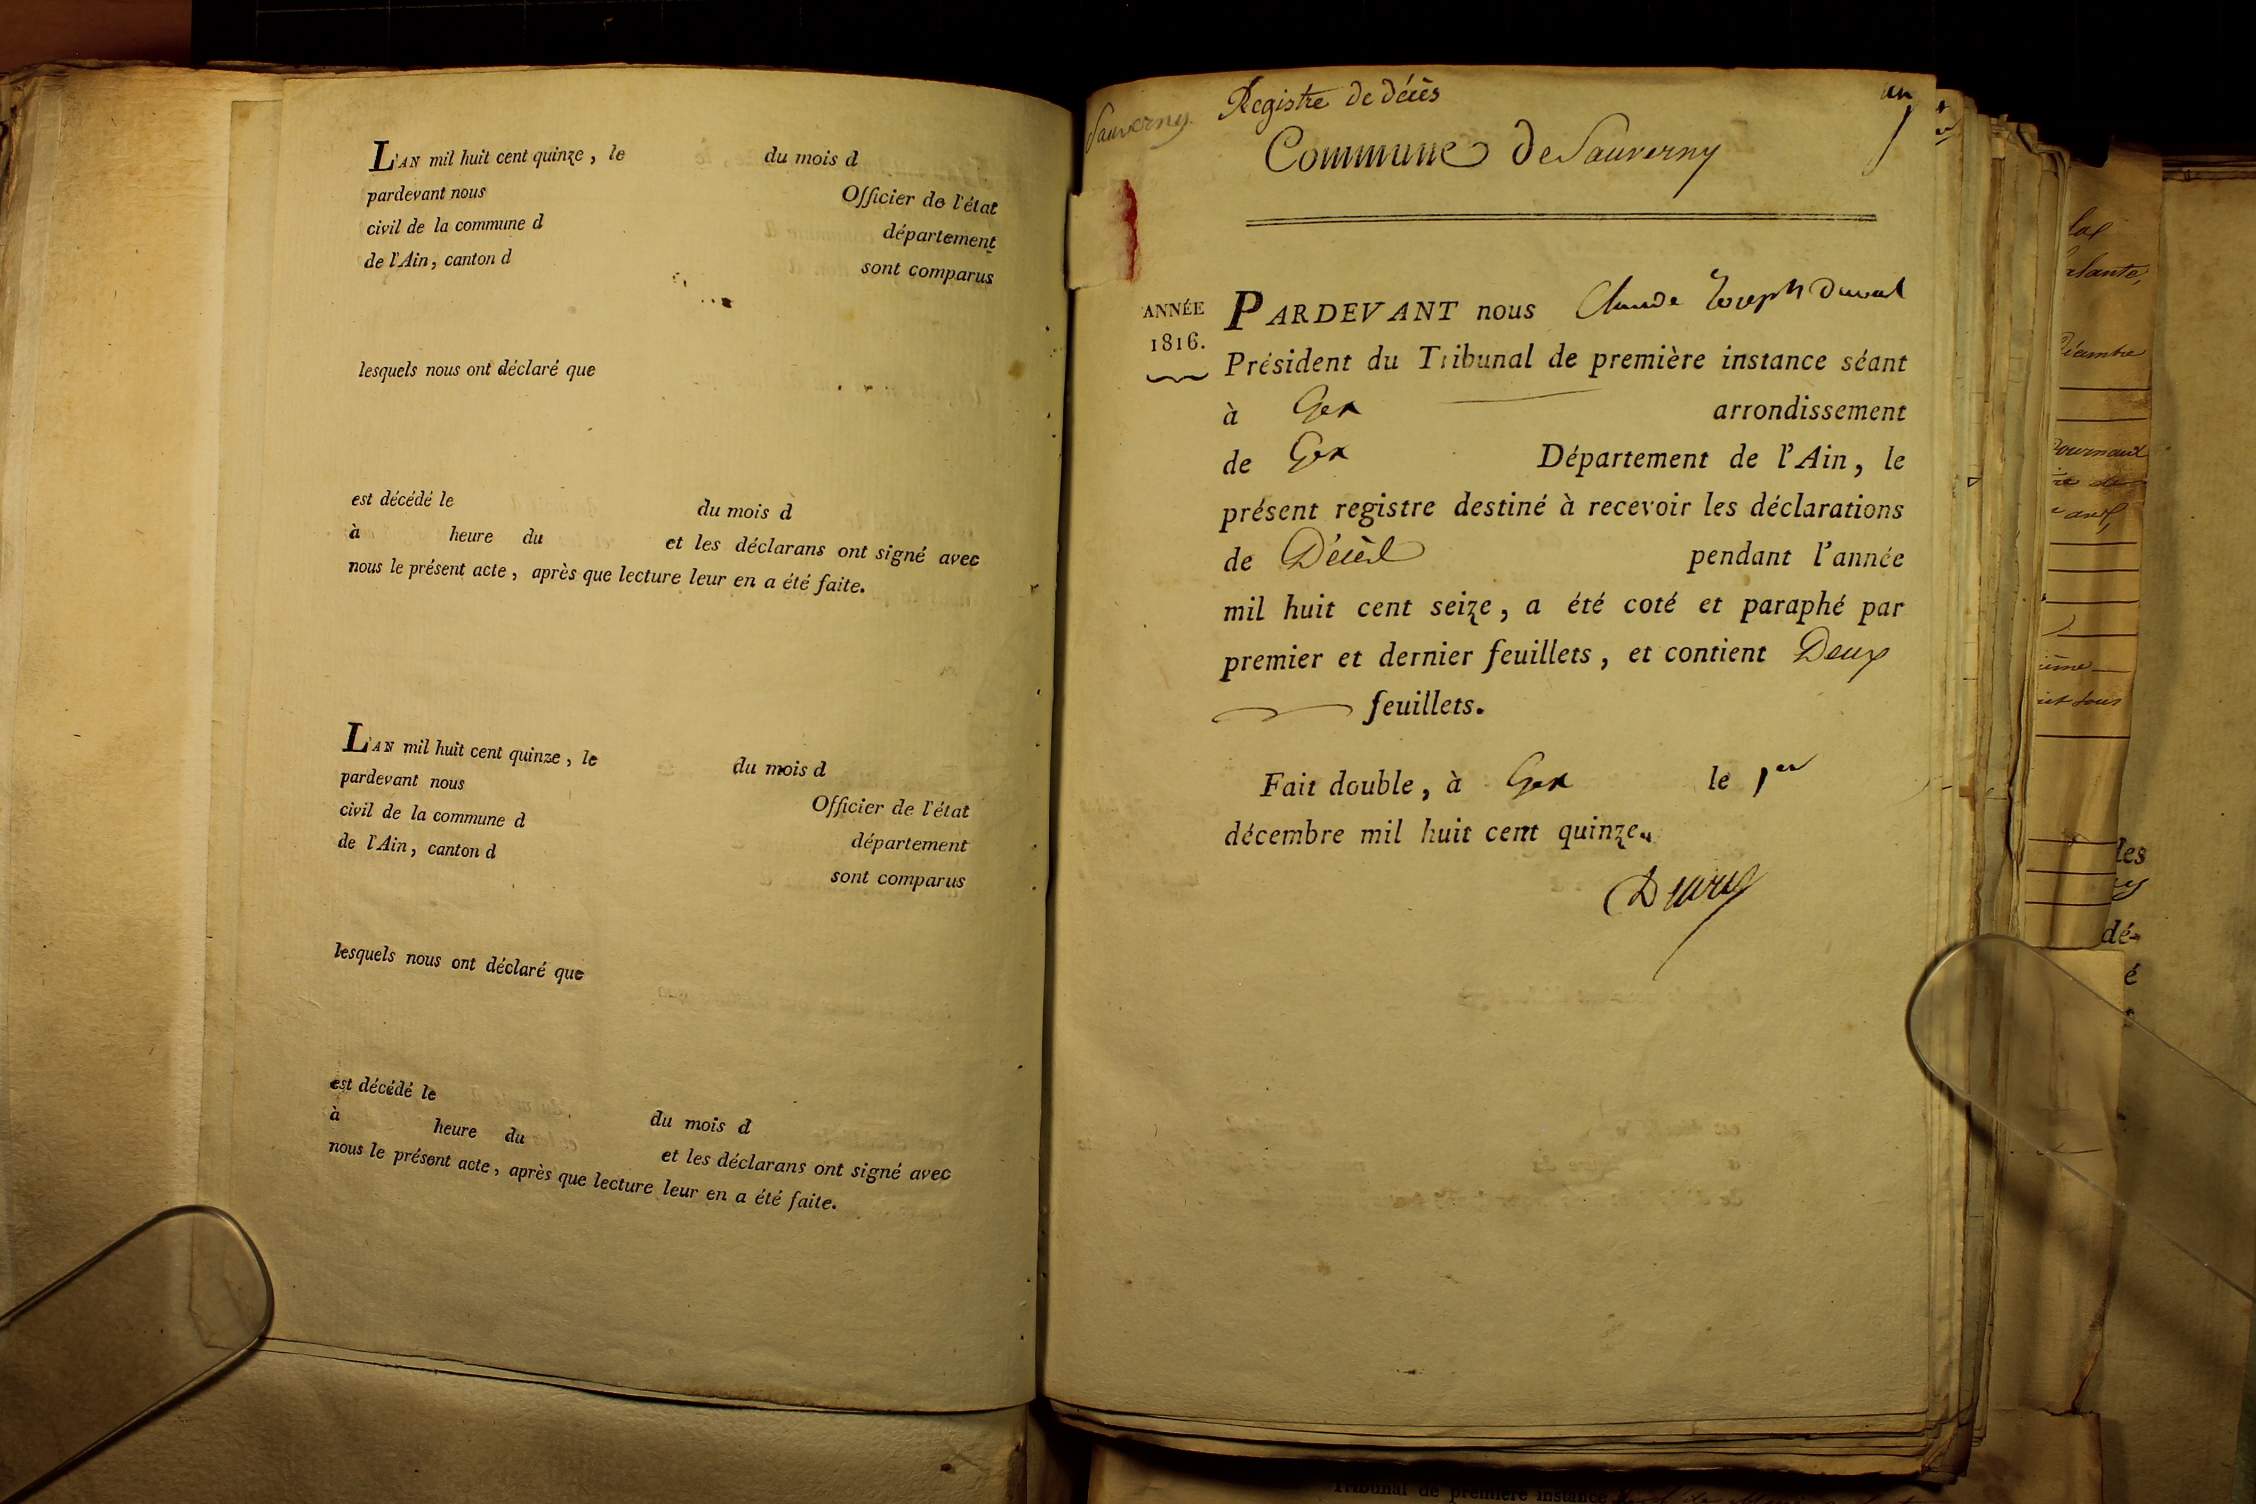 L'AN mil huit cent quinze, le du mois d
pardevant nous Officier de l'état
civil de la commune d département
de l'Ain, canton d sont comparus
lesquels nous ont déclaré que
est décédé le du mois d
à heure du et les déclarans ont signé avec
nous le présent acte, après que lecture leur en a été faite.
L'AN mil huit cent quinze, le du mois d
pardevant nous Officier de l'état
civil de la commune d département
de l'Ain, canton d sont comparus
lesquels nous ont déclaré que
est décédé le du mois d
à heure du et les déclarans ont signé avec
nous le présent acte, après que lecture leur en a été faite.
Sauverny. Registre de décès un
Commune de Sauverny
ANNÉE
1816.
PARDEVANT nous Claude Joseph Duval
Président du Tribunal de première instance séant
à Gex arrondissement
de Gex Département de l'Ain, le
présent registre destiné à recevoir les déclarations
de Décès pendant l'année
mil huit cent seize, a été coté et paraphé par
premier et dernier feuillets, et contient Deux
feuillets.
Fait double, à Gex le 1er
décembre mil huit cent quinze.
Duval
Tribunal de première instance